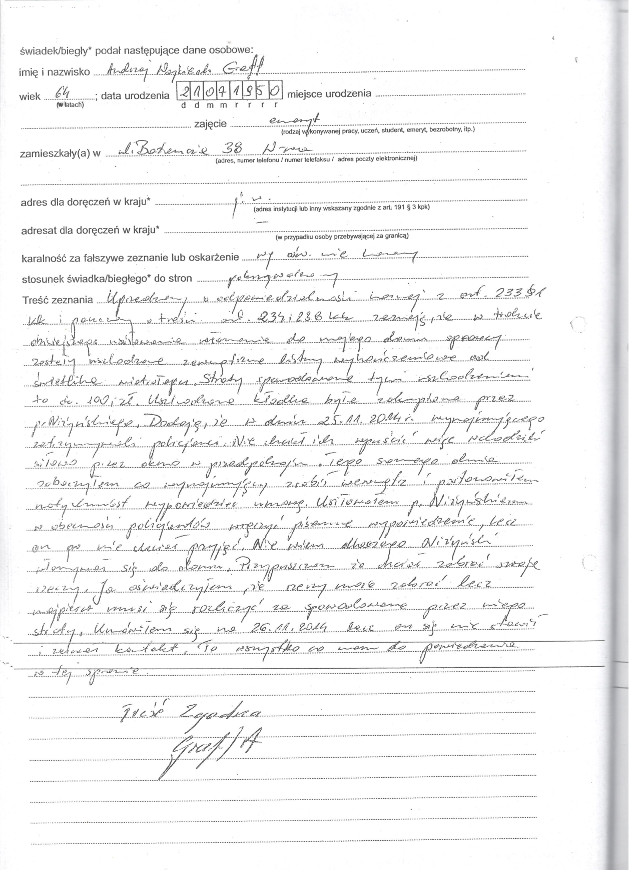 świadek/biegły* podał następujące dane osobowe:
imię i nazwisko Andrzej Graff
wiek 64 ; data urodzenia 21041950 miejsce urodzenia
(w latach) d d m m r r r r
zajęcie emeryt
(rodzaj wykonywanej pracy, uczeń, student, emeryt, bezrobotny, itp.)
zamieszkały(a) w ul. 38
(adres, numer telefonu / numer telefaksu / adres poczty elektronicznej)
adres dla doręczeń w kraju* j. w.
(adres instytucji lub inny wskazany zgodnie z art. 191 § 3 kpk)
adresat dla doręczeń w kraju* —
(w przypadku osoby przebywającej za granicą)
karalność za fałszywe zeznanie lub oskarżenie wg ośw. nie karany
stosunek świadka/biegłego* do stron pokrzywdzony
Treść zeznania Uprzedzony o odpowiedzialności karnej z art. 233 §1
kk i pouczony o treści art. 234 i 238 kk zeznaję, że w trakcie
usiłowania włamania do mojego domu sprawcy
zostały uszkodzone zewnętrzne listwy wykończeniowe od
Straty spowodowane tymi uszkodzeniami
to ok. 100,- zł. Uszkodzona kłódka była zakupiona przez
p. Niżyńskiego. Dodaję, że w dniu 25.11.2014r. wynajmującego
zatrzymywali policjanci. Nie chciał ich wpuścić więc wchodzili
siłowo przez okno w przedpokoju. Tego samego dnia
zobaczyłem co wynajmujący zrobił wewnątrz i postanowiłem
natychmiast wypowiedzieć umowę. Usiłowałem p. Niżyńskiemu
w obecności policjantów wręczyć pisemne wypowiedzenie, lecz
on go nie chciał przyjąć. Nie wiem dlaczego Niżyński
włamywał się do domu. Przypuszczam że chciał zabrać swoje
rzeczy. Ja oświadczyłem, że rzeczy może zabrać lecz
najpierw musi się rozliczyć za spowodowane przez niego
straty. Umówiłem się na 26.11.2014 lecz on się nie stawił
i zerwał kontakt. To wszystko co mam do powiedzenia
w tej sprawie.
Treść Zgodna
Graff A